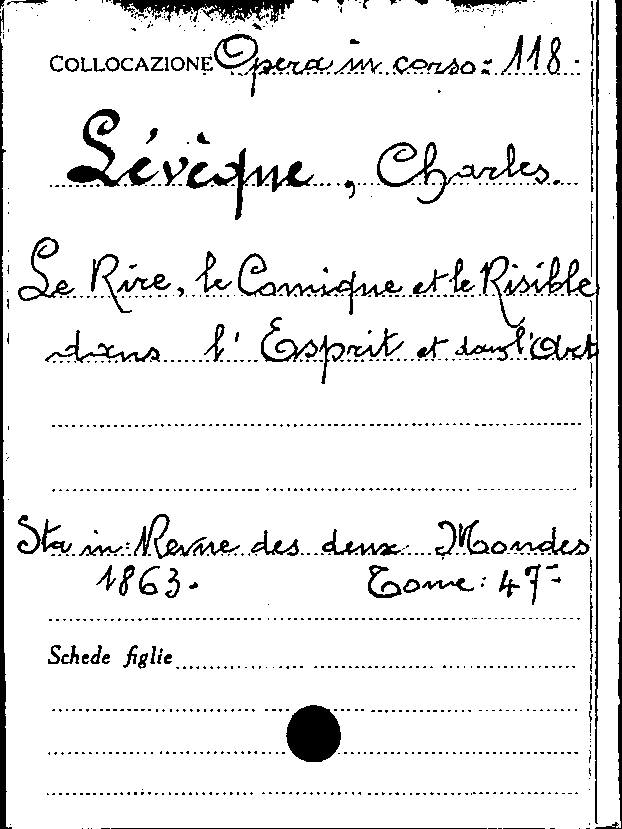 COLLOCAZIONE Opera in corso: 118.
Lévèque, Charles.
Le Rire, le Comique et le Risible
dans l'Esprit et dans l'Art
Sta in: Revue des deux Mondes
1863. Tome: 47-
Schede figlie